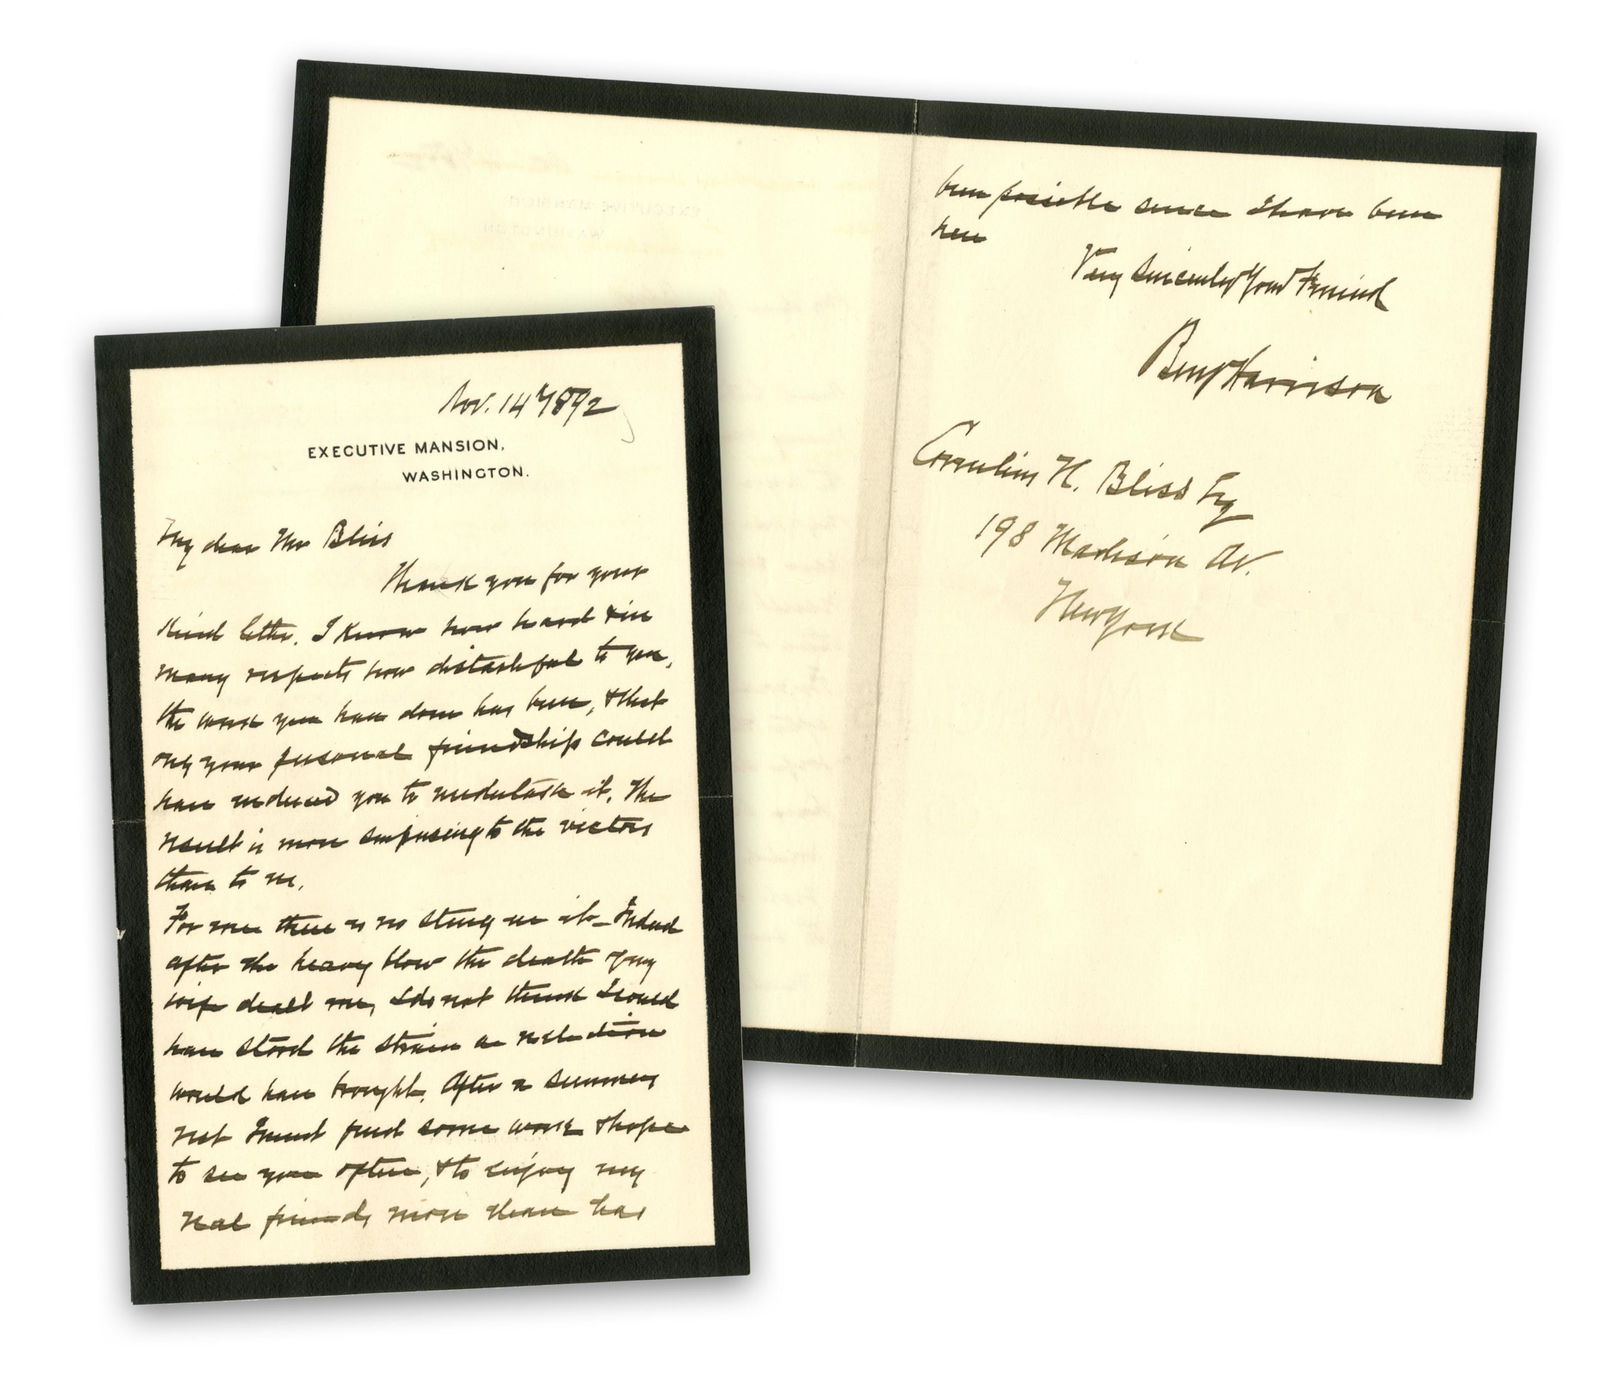 Nov. 14th 1892
EXECUTIVE MANSION,
WASHINGTON.
My dear Mr Bliss
Thank you for your
kind letter. I know how hard & in
many respects how distasteful to you,
the work you have done has been, & that
only your personal friendship could
have induced you to undertake it. The
result is more surprising to the victors
than to me.
For me there is no sting in it – Indeed
after the heavy blow the death of my
wife dealt me, I do not think I could
have stood the strain a reelection
would have brought. After a summers
rest I must find some work & hope
to see you often, & to enjoy my
real friends more than has
been possible since I have been
here
Very Sincerely Your Friend
Benj Harrison
Cornelius N. Bliss Esq
198 Madison Av.
New York